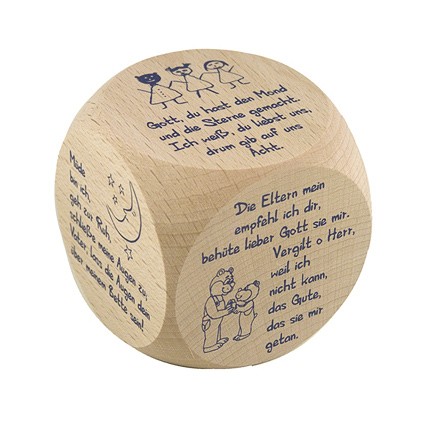 Gott, du hast den Mond
und die Sterne gemacht.
Ich weiß, du liebst uns,
drum gib auf uns
Acht.
Müde
bin ich,
geh zur Ruh,
schließe meine Augen zu.
Vater, lass die Augen dein
über meinem Bette sein!
Die Eltern mein
empfehl ich dir,
behüte lieber Gott sie mir.
Vergilt o Herr,
weil ich
nicht kann,
das Gute,
das sie mir
getan.